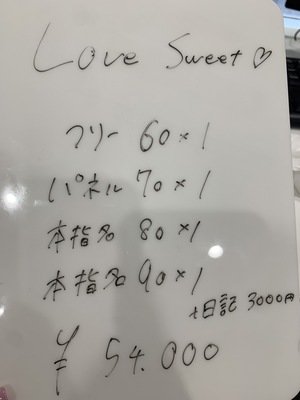 Love Sweet♡
フリー 60×1
パネル 70×1
本指名 80×1
本指名 90×1
+日記 3000円
¥ 54.000